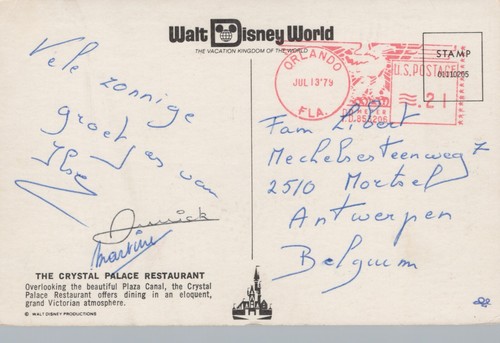 Walt Disney World
THE VACATION KINGDOM OF THE WORLD
Vele zonnige
groetjes van
Ilse
Annick
Martine
THE CRYSTAL PALACE RESTAURANT
Overlooking the beautiful Plaza Canal, the Crystal
Palace Restaurant offers dining in an eloquent,
grand Victorian atmosphere.
© WALT DISNEY PRODUCTIONS
ORLANDO
JUL 13'79
FLA.
U.S. POSTAGE
.21
STAMP
01110205
Fam Libert
Mechelsesteenweg 7
2510 Mortsel
Antwerpen
Belgium